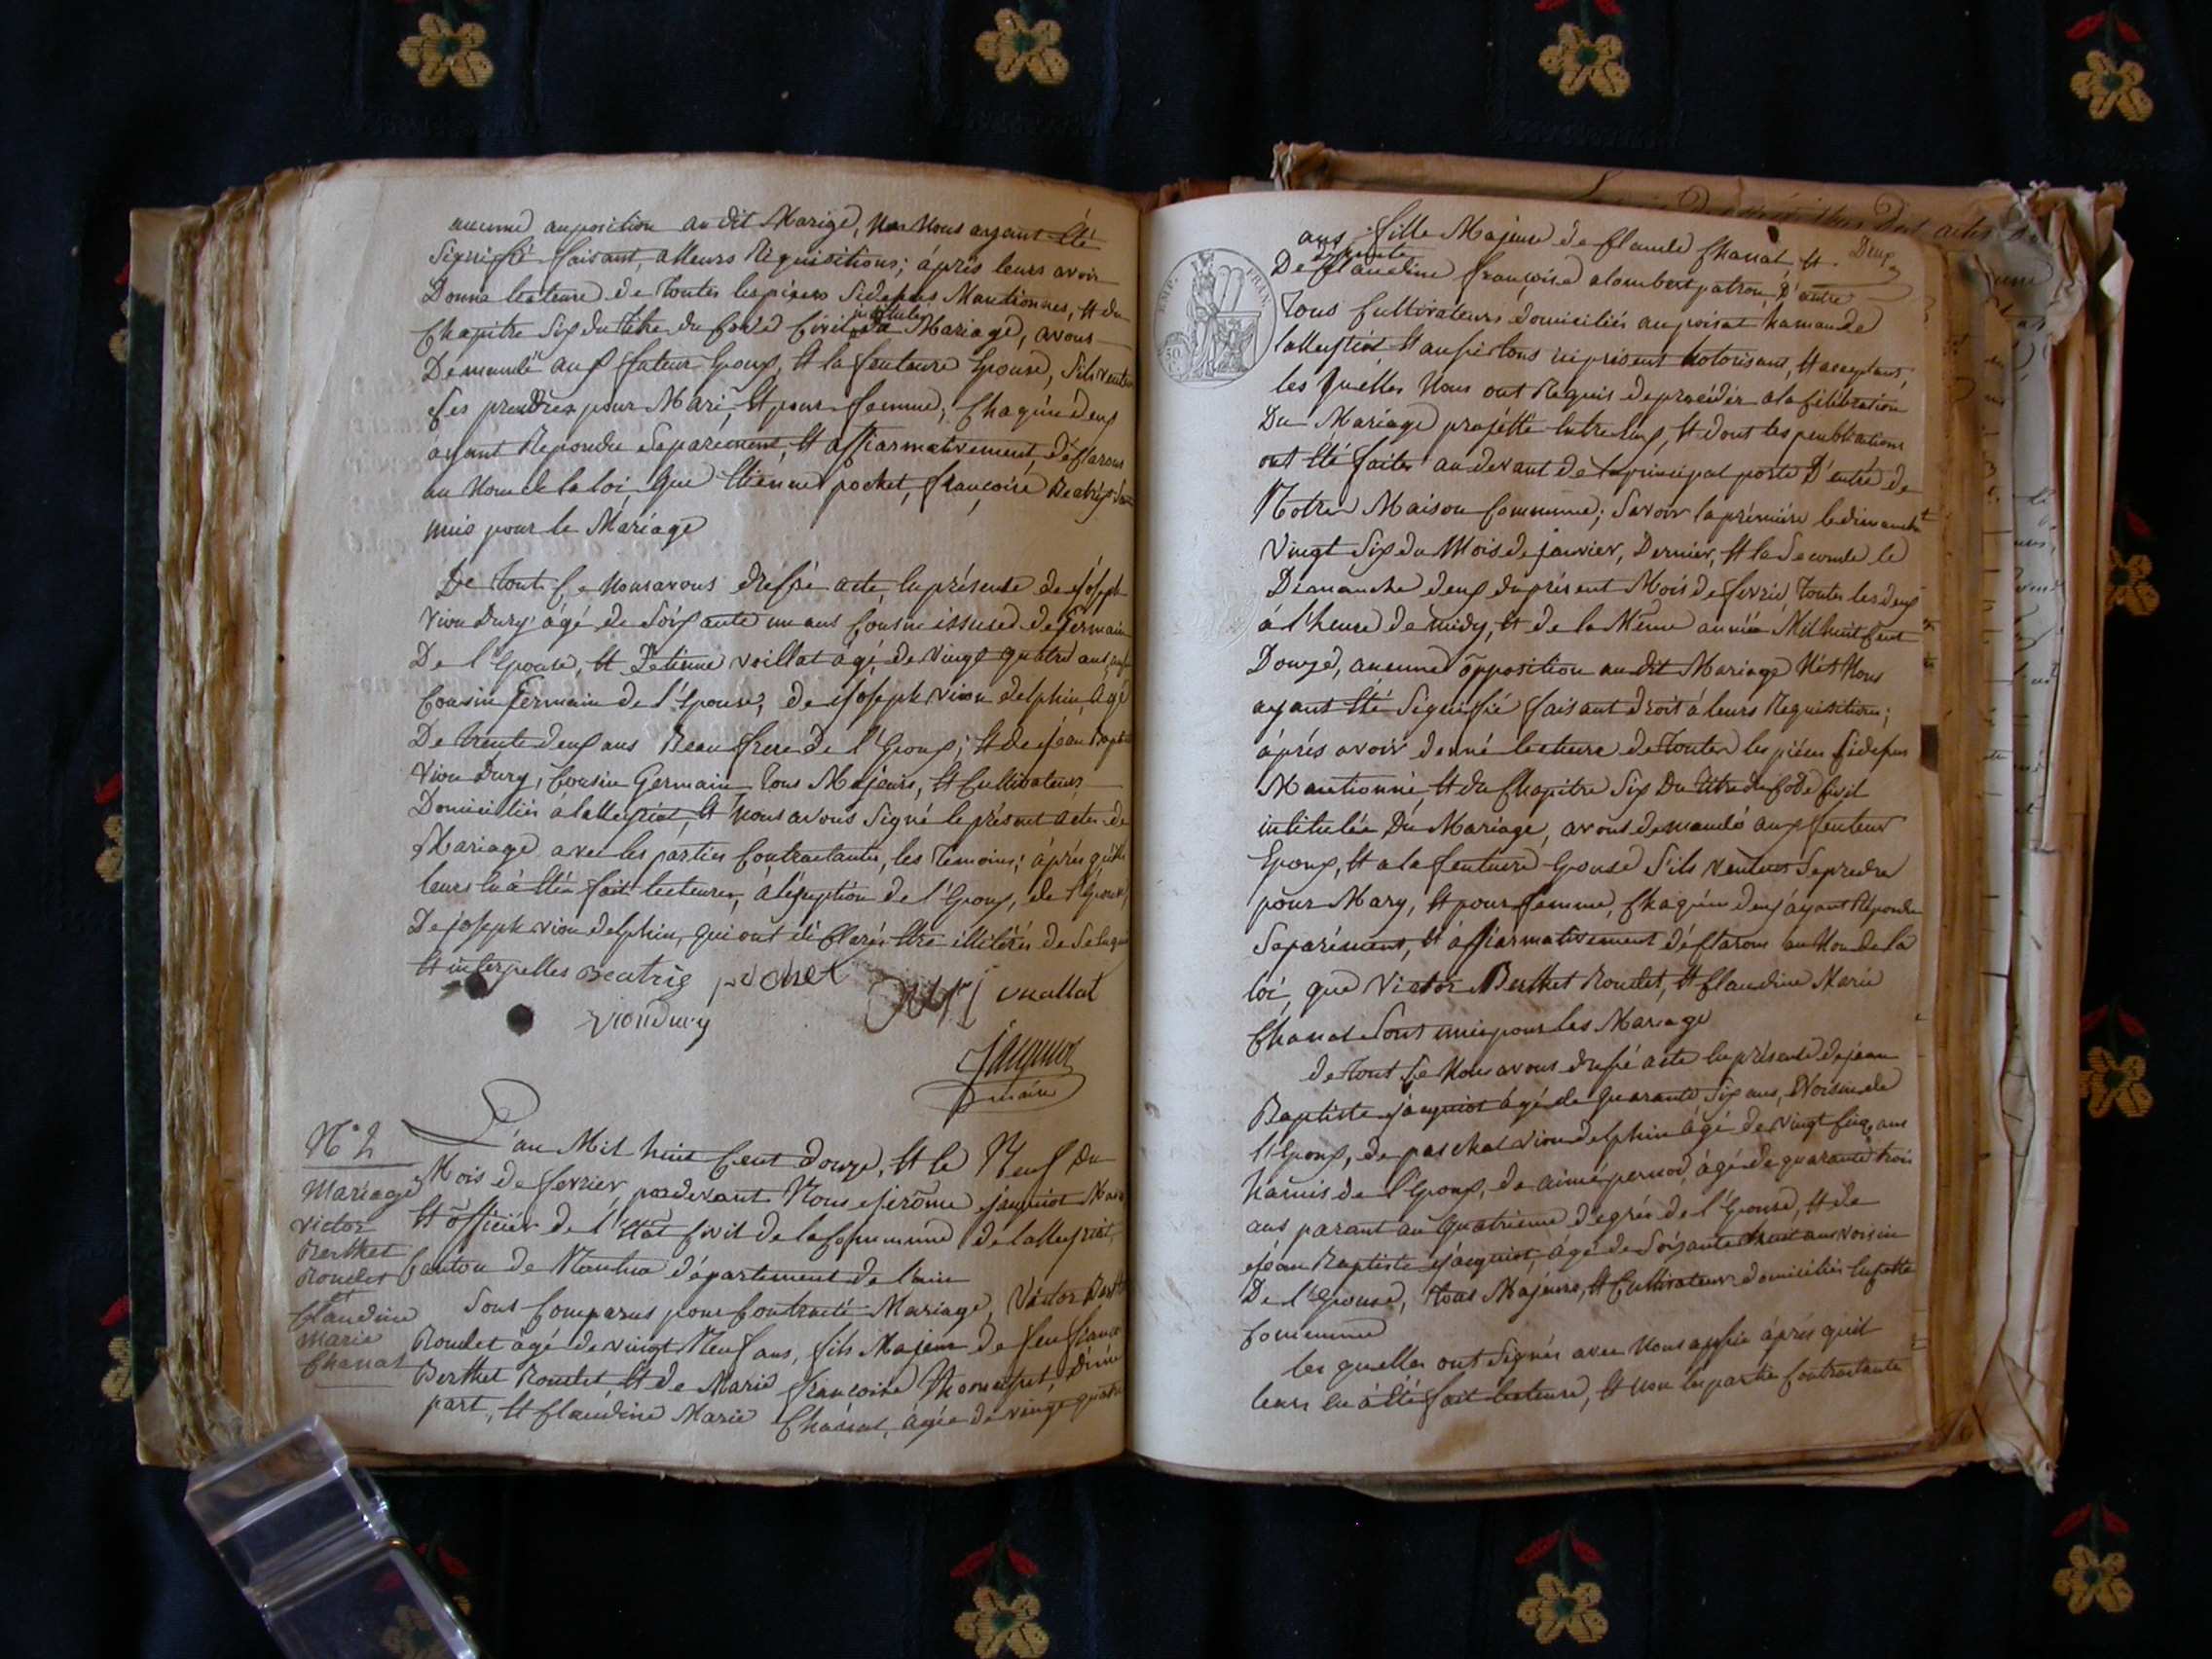 aucune auposition au dit Marige, Nous ayant été
Signifié faisant, alleurs Réquisitions; aprés leurs avoir
Donné lecteure de toutes les pieces Sidessus Mantionnés, et du
Chapitre Six du titre du Code Civil intitulé du Mariage, avons
Demandé aux futeur Epoux, et la feuteure Epouse, S'ils veulent
Ses prendre pour Mari, et pour femme, Chaquún deux
ayant Repondu Separément, et affiarmativement déclarons
au Nom de la loi que Etienne pochet, françoise Beatrix Sont
unis pour le Mariage
De tout Ce Nous avons dressé acte, en présence de joseph
Vion Dury âgé de Soixante un ans Cousin issused de Germain
De l'Epouse, et D'etienne vuillat âgé de Vingt quatre ans, aussi
Cousin Germain de l'Epouse, de joseph vion delphin, âgé
De trente deux ans Beau frere de l'Epoux; et de jean Baptiste
Vion Dury, Cousin Germain tous Majeurs, et Cultivateurs
Domiciliés à lalleyriat, et Nous avons Signé le présent acte de
Mariage avec les parties Contractantes, les témoins; aprés qu'il
leurs en à étée fait lecteure, à l'éxseption de l'Epoux, de l'Epouse
De joseph vion delphin, qui ont déclarés être illitérés de Se enquis
et interpelles Beatrix pochet vuallat
Viondury
jacquiot
maire
N° 2
Mariage
Victor
Berthet
Roudet
et
Claudine
Marie
Chanat
L'an Mil huit Cent douze, et le Neuf du
Mois de fevrier, pardevant Nous jerôme jaquiot Maire
et officier de l'Etat Civil de la Commune de lalleyriat,
Canton de Nantua département de l'ain
Sont Comparus pour Contracté Mariage, Victor Berthet
Roudet âgé de vingt Neuf ans, fils Majeur de feu france
Berthet Roudet et de Marie françoise , d'une
part, et Claudine Marie Chanat, âgée de vingt quatre
Deux
ans, fille Majeure de Claude Chanat et
De défunte Claudine françoise alombert patron, D'autre
Tous Cultivateurs domiciliés au poisat hamau de
lalleyriat et aussi tous icy présent hotorisant, et acceptant,
les quelles Nous ont Requis de procéder à la Célébration
Du Mariage projétté entre eux, et dont les peublications
ont été faites au devant de la principal porte D'entré de
Notre Maison Commune; Savoir la prémiére le dimanche
Vingt Six du Mois de janvier, Dernier, et la Seconde le
Dimanche deux du présent Mois de fevrié, toutes les deux
à l'heure de midy, et de la Même année Mil huit Cent
Douze, aucune õpposition au dit Mariage N'es Nous
ayant été Signifié faisant droit à leurs Requisition;
àprés avoir donné lecteure de toutes les piéces Sidessus
Mantionné, et du Chapitre Six Du titre du Code Civil
intitulée Du Mariage, avons demandé aux feuteur
Epoux, et a la feuteure Epouse S'ils veulent Se predre
pour Mary, et pour femme, Chaquún deux ayant Répondu
Separément, et affiarmativement déclarons au Nom de la
loi, que Victor Berthet Roudet, et Claudine Marie
Chanat Sont unis pour les Mariage
de tout Ce Nous avons dressé acte en présence de jean
Baptiste jaquiot âgé de quarante Six ans, Voisin de
l'Epoux, de paschal vion delphin âgé de vingt Cinq ans
hamis de l'Epoux, de aimé pernod, âgé de quarante trois
ans parant au quatriéme degrés de l'Epouse, et de
jean Baptiste jacquiot, âgé de Soixante huit ans voisin
De l'Epouse, tous Majeurs, et Cultivateurs domiciliés en cette
Commune
les quelles ont Signés avec Nous aprés quil
leurs en à été fait lecteure, et non les partie Contractante
EMP. FRAN.
50